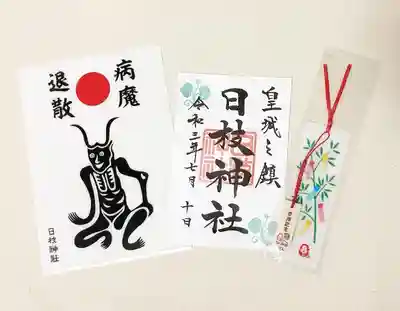 病魔
退散
日枝神社
皇城之鎮
日枝神社
令和三年七月
十日